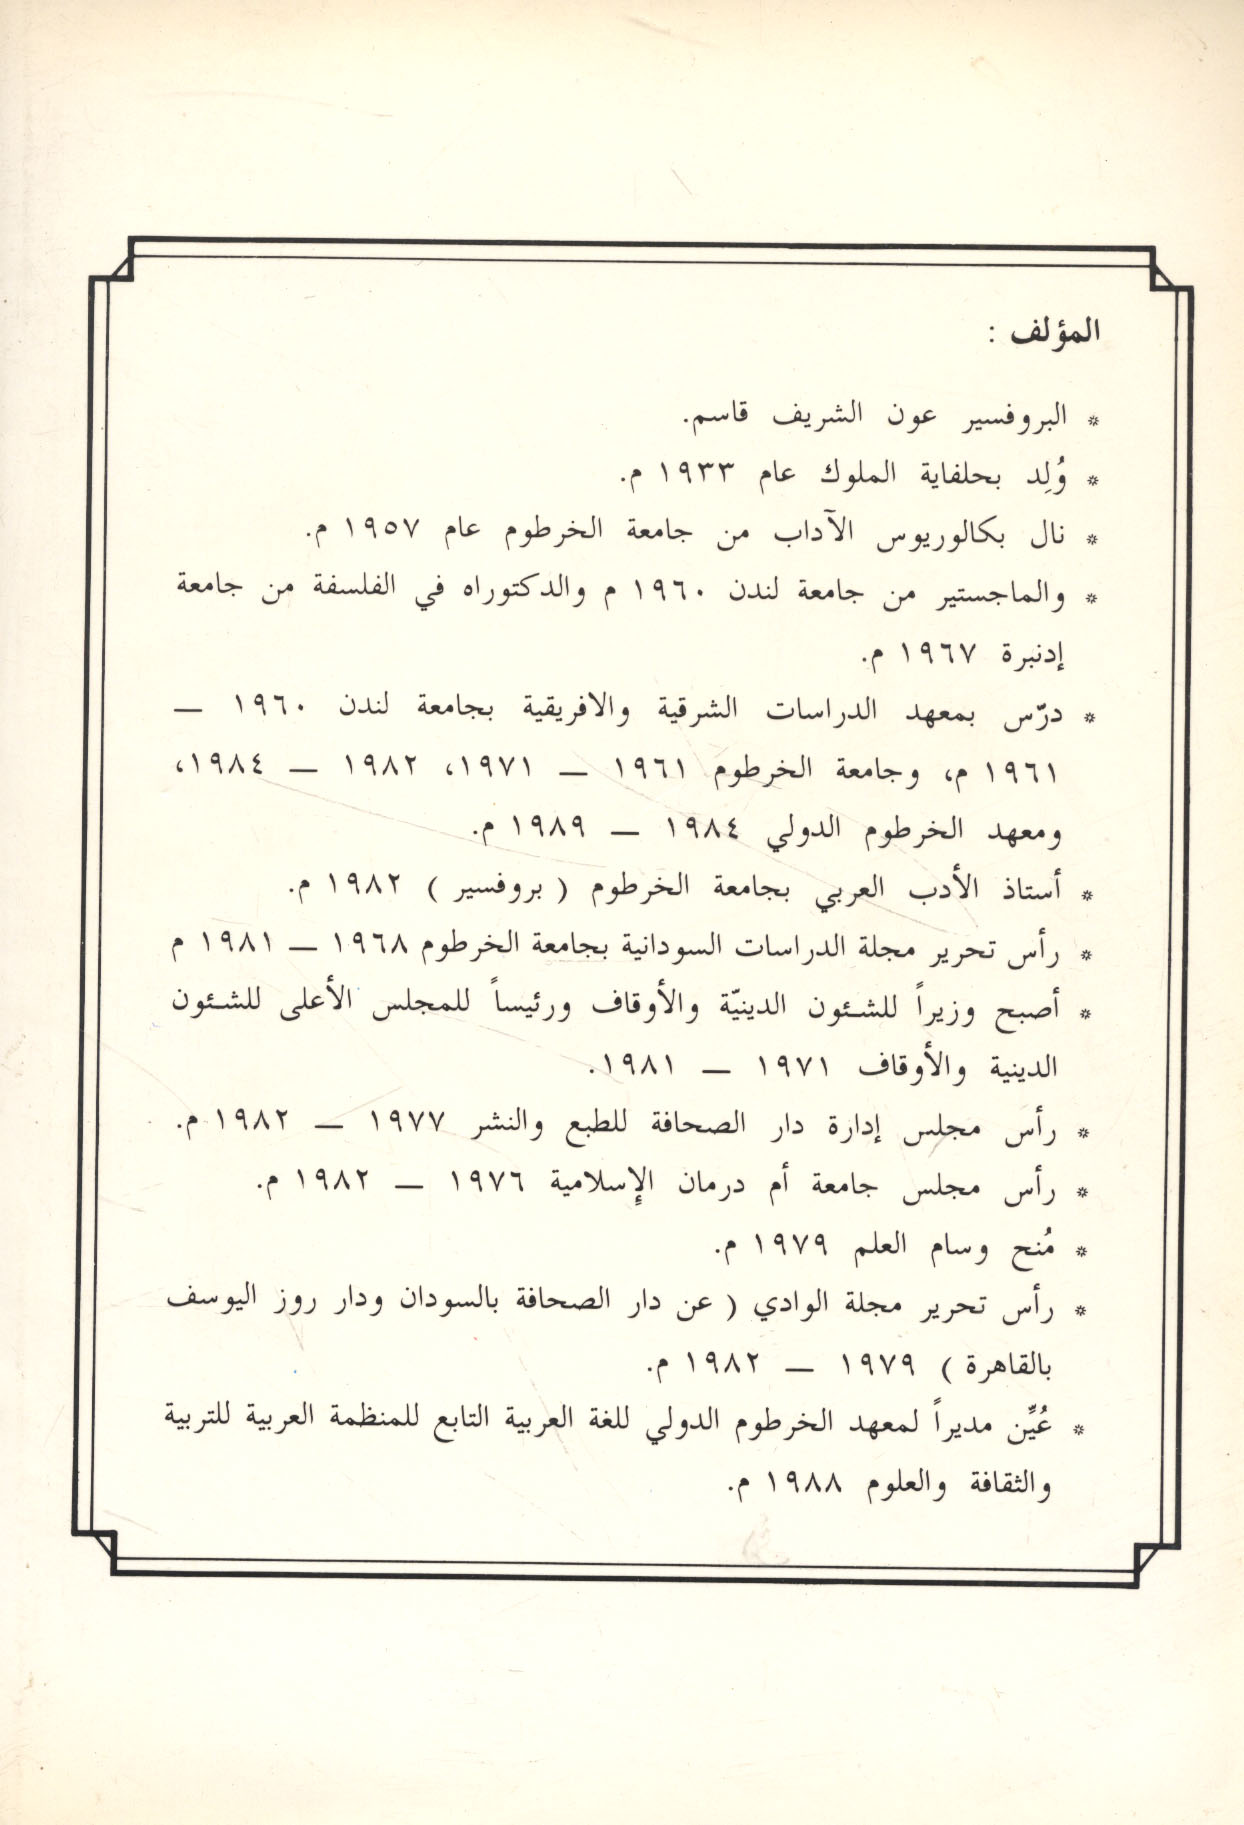 المؤلف :
* البروفسير عون الشريف قاسم.
* وُلِد بحلفاية الملوك عام ١٩٣٣ م.
* نال بكالوريوس الآداب من جامعة الخرطوم عام ١٩٥٧ م.
* والماجستير من جامعة لندن ١٩٦٠ م والدكتوراه في الفلسفة من جامعة
إدنبرة ١٩٦٧ م.
* درّس بمعهد الدراسات الشرقية والافريقية بجامعة لندن ١٩٦٠ —
١٩٦١ م، وجامعة الخرطوم ١٩٦١ — ١٩٧١، ١٩٨٢ — ١٩٨٤،
ومعهد الخرطوم الدولي ١٩٨٤ — ١٩٨٩ م.
* أستاذ الأدب العربي بجامعة الخرطوم ( بروفسير ) ١٩٨٢ م.
* رأس تحرير مجلة الدراسات السودانية بجامعة الخرطوم ١٩٦٨ — ١٩٨١ م
* أصبح وزيراً للشئون الدينيّة والأوقاف ورئيساً للمجلس الأعلى للشئون
الدينية والأوقاف ١٩٧١ — ١٩٨١.
* رأس مجلس إدارة دار الصحافة للطبع والنشر ١٩٧٧ — ١٩٨٢ م.
* رأس مجلس جامعة أم درمان الإسلامية ١٩٧٦ — ١٩٨٢ م.
* مُنح وسام العلم ١٩٧٩ م.
* رأس تحرير مجلة الوادي ( عن دار الصحافة بالسودان ودار روز اليوسف
بالقاهرة ) ١٩٧٩ — ١٩٨٢ م.
* عُيِّن مديراً لمعهد الخرطوم الدولي للغة العربية التابع للمنظمة العربية للتربية
والثقافة والعلوم ١٩٨٨ م.